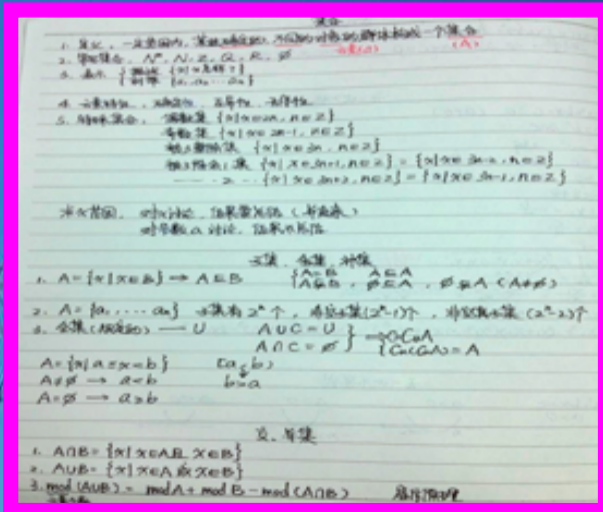 集合
1. 定义，一定范围内，某些确定的，不同的对象的群体构成一个集合
元素(a) (A)
2. 常用集合，N*，N，Z，Q，R，∅
3. 表示 { 描述 {x|x
列举 {a₁ a₂ ... aₙ}
4. 元素特性，确定性，互异性，无序性
5. 特殊集合，偶数集 {x|x=2n，n∈Z}
奇数集 {x|x=2n-1，n∈Z}
被3整除集 {x|x=3n，n∈Z}
被3除余1集 {x|x=3n+1，n∈Z} = {x|x=3n-2，n∈Z}
...... 2 ... {x|x=3n+2，n∈Z} = {x|x=3n-1，n∈Z}
求x范围，对x讨论，结果要总结（并起来）
对参数a讨论，结果不总结
子集、全集、补集
1. A={x|x∈B} → A⊆B {A=B A⊆A
A⫋B，∅⊆A，∅⫋A (A≠∅)
2. A={a₁.....aₙ} 子集有2ⁿ个，非空子集(2ⁿ-1)个，非空真子集(2ⁿ-2)个
3. 全集 — U A∪C=U
A∩C=∅ } → C=CuA
{Cu(CuA)=A
A={x|a≤x<b} [a,b)
A≠∅ → a<b b>a
A=∅ → a≥b
交、并集
1. A∩B={x|x∈A且x∈B}
2. A∪B={x|x∈A或x∈B}
3. mod(A∪B) = modA + modB - mod(A∩B) 容斥原理
元素个数